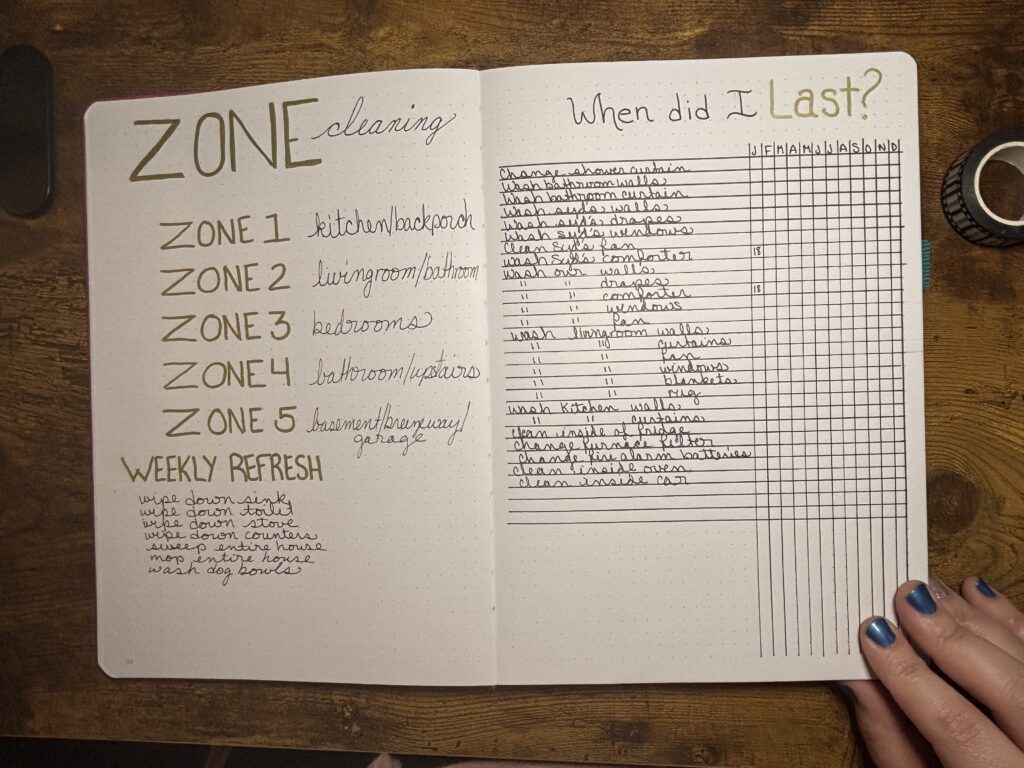 ZONE cleaning
ZONE 1 kitchen/backporch
ZONE 2 livingroom/bathroom
ZONE 3 bedrooms
ZONE 4 bathroom/upstairs
ZONE 5 basement/breezeway/
garage
WEEKLY REFRESH
wipe down sink
wipe down toilet
wipe down stove
wipe down counters
sweep entire house
mop entire house
wash dog bowls
When did I Last?
J F M A M J J A S O N D
Change shower curtain
Wash bathroom walls
Wash bathroom curtain
Wash Syd's walls
Wash Syd's drapes
Wash Syd's windows
Clean Syd's fan
Wash Syd's comforter 18
Wash our walls
" " drapes
" " comforter 18
" " windows
" " fan
Wash livingroom walls
" " curtains
" " fan
" " windows
" " blankets
" " rug
Wash Kitchen walls
" " curtains
clean inside of fridge
change furnace filter
change fire alarm batteries
clean inside oven
clean inside car